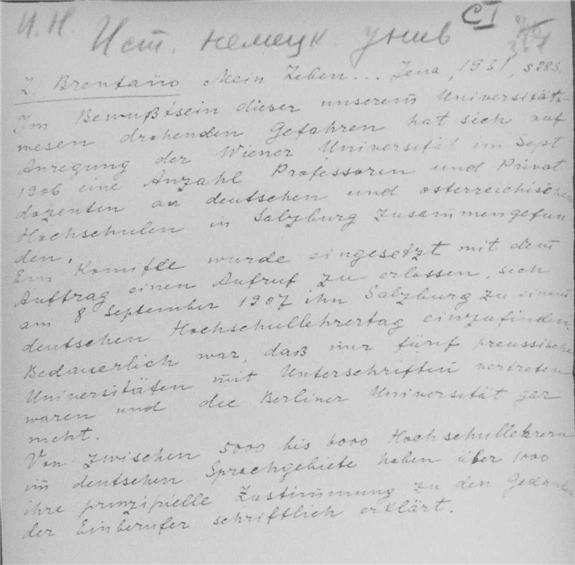 И. Н. Ист. немецк. унив CI
L Brentano Mein Leben... Jena, 1931, s 283.
Im Bewußtsein dieser unserem Universitäts-
wesen drohenden Gefahren hat sich auf
Anregung der Wiener Universität im Sept
1906 eine Anzahl Professoren und Privat
dozenten an deutschen und österreichischen
Hochschulen in Salzburg zusammengefun
den.
Ein Komitee wurde eingesetzt mit dem
Auftrag einen Aufruf zu erlassen, sich
am 8 September 1907 ihn Salzburg zu einem
deutschen Hochschullehrertag einzufinden.
Bedauerlich war, daß nur fünf preussische
Universitäten mit Unterschriften vertreten
waren und die Berliner Universität gar
nicht.
Von zwischen 5000 bis 6000 Hochschullehrern
im deutschen Sprachgebiete haben über 1000
ihre prinzipielle Zustimmung zu den Gedanken
der Einberufer schriftlich erklärt.